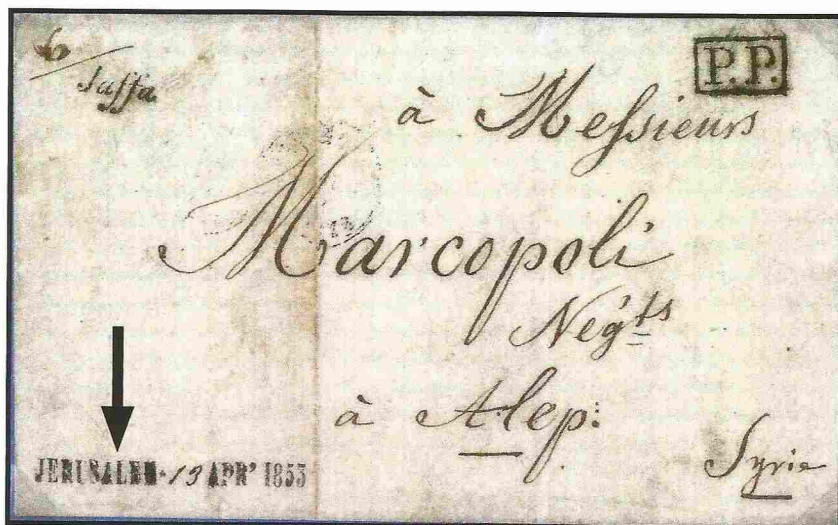 6
Jaffa
P.P.
à Messieurs
Marcopoli
Neg^ts
à Alep:
Syrie
JERUSALEM. 13 APR' 1853